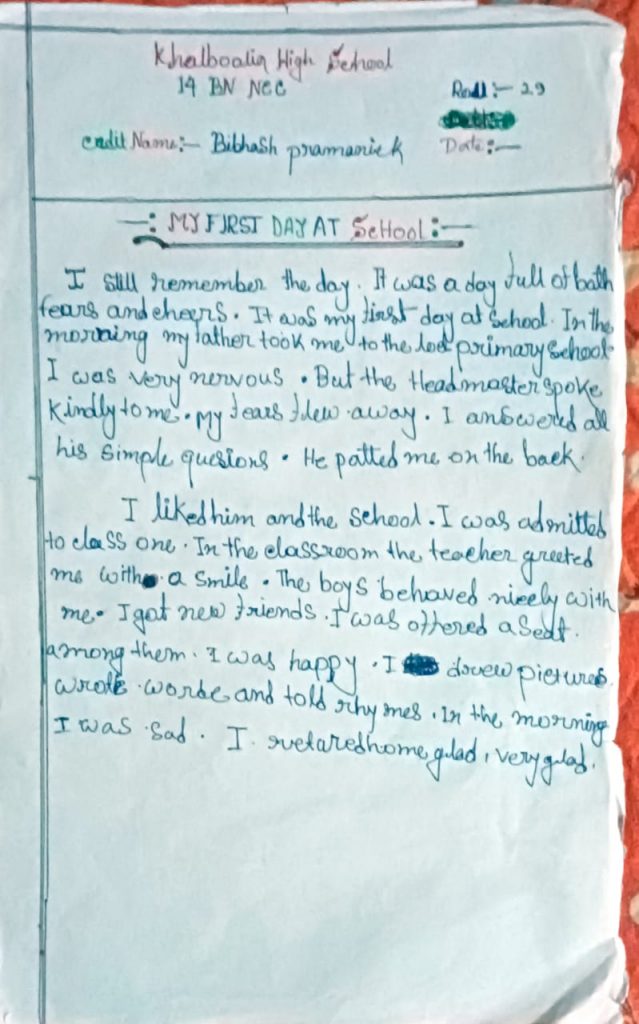 Khalboalia High School
14 BN NCC
Roll :- 29
cadit Name :- Bibhash pramanick
Date :-
-: MY FIRST DAY AT SCHOOL :-
I still remember the day. It was a day full of both
fears and cheers. It was my first day at School. In the
morning my father took me to the primary School.
I was very nervous. But the Headmaster spoke
kindly to me. My fears flew away. I answered all
his simple quesions. He patted me on the back.
I liked him and the school. I was admitted
to class one. In the classroom the teacher greeted
me with a smile. The boys behaved nicely with
me. I got new friends. I was offered a Seat.
among them. I was happy. I drew pictures.
wrote and told rhymes. In the morning
I was sad. I home gulad, very gulad.